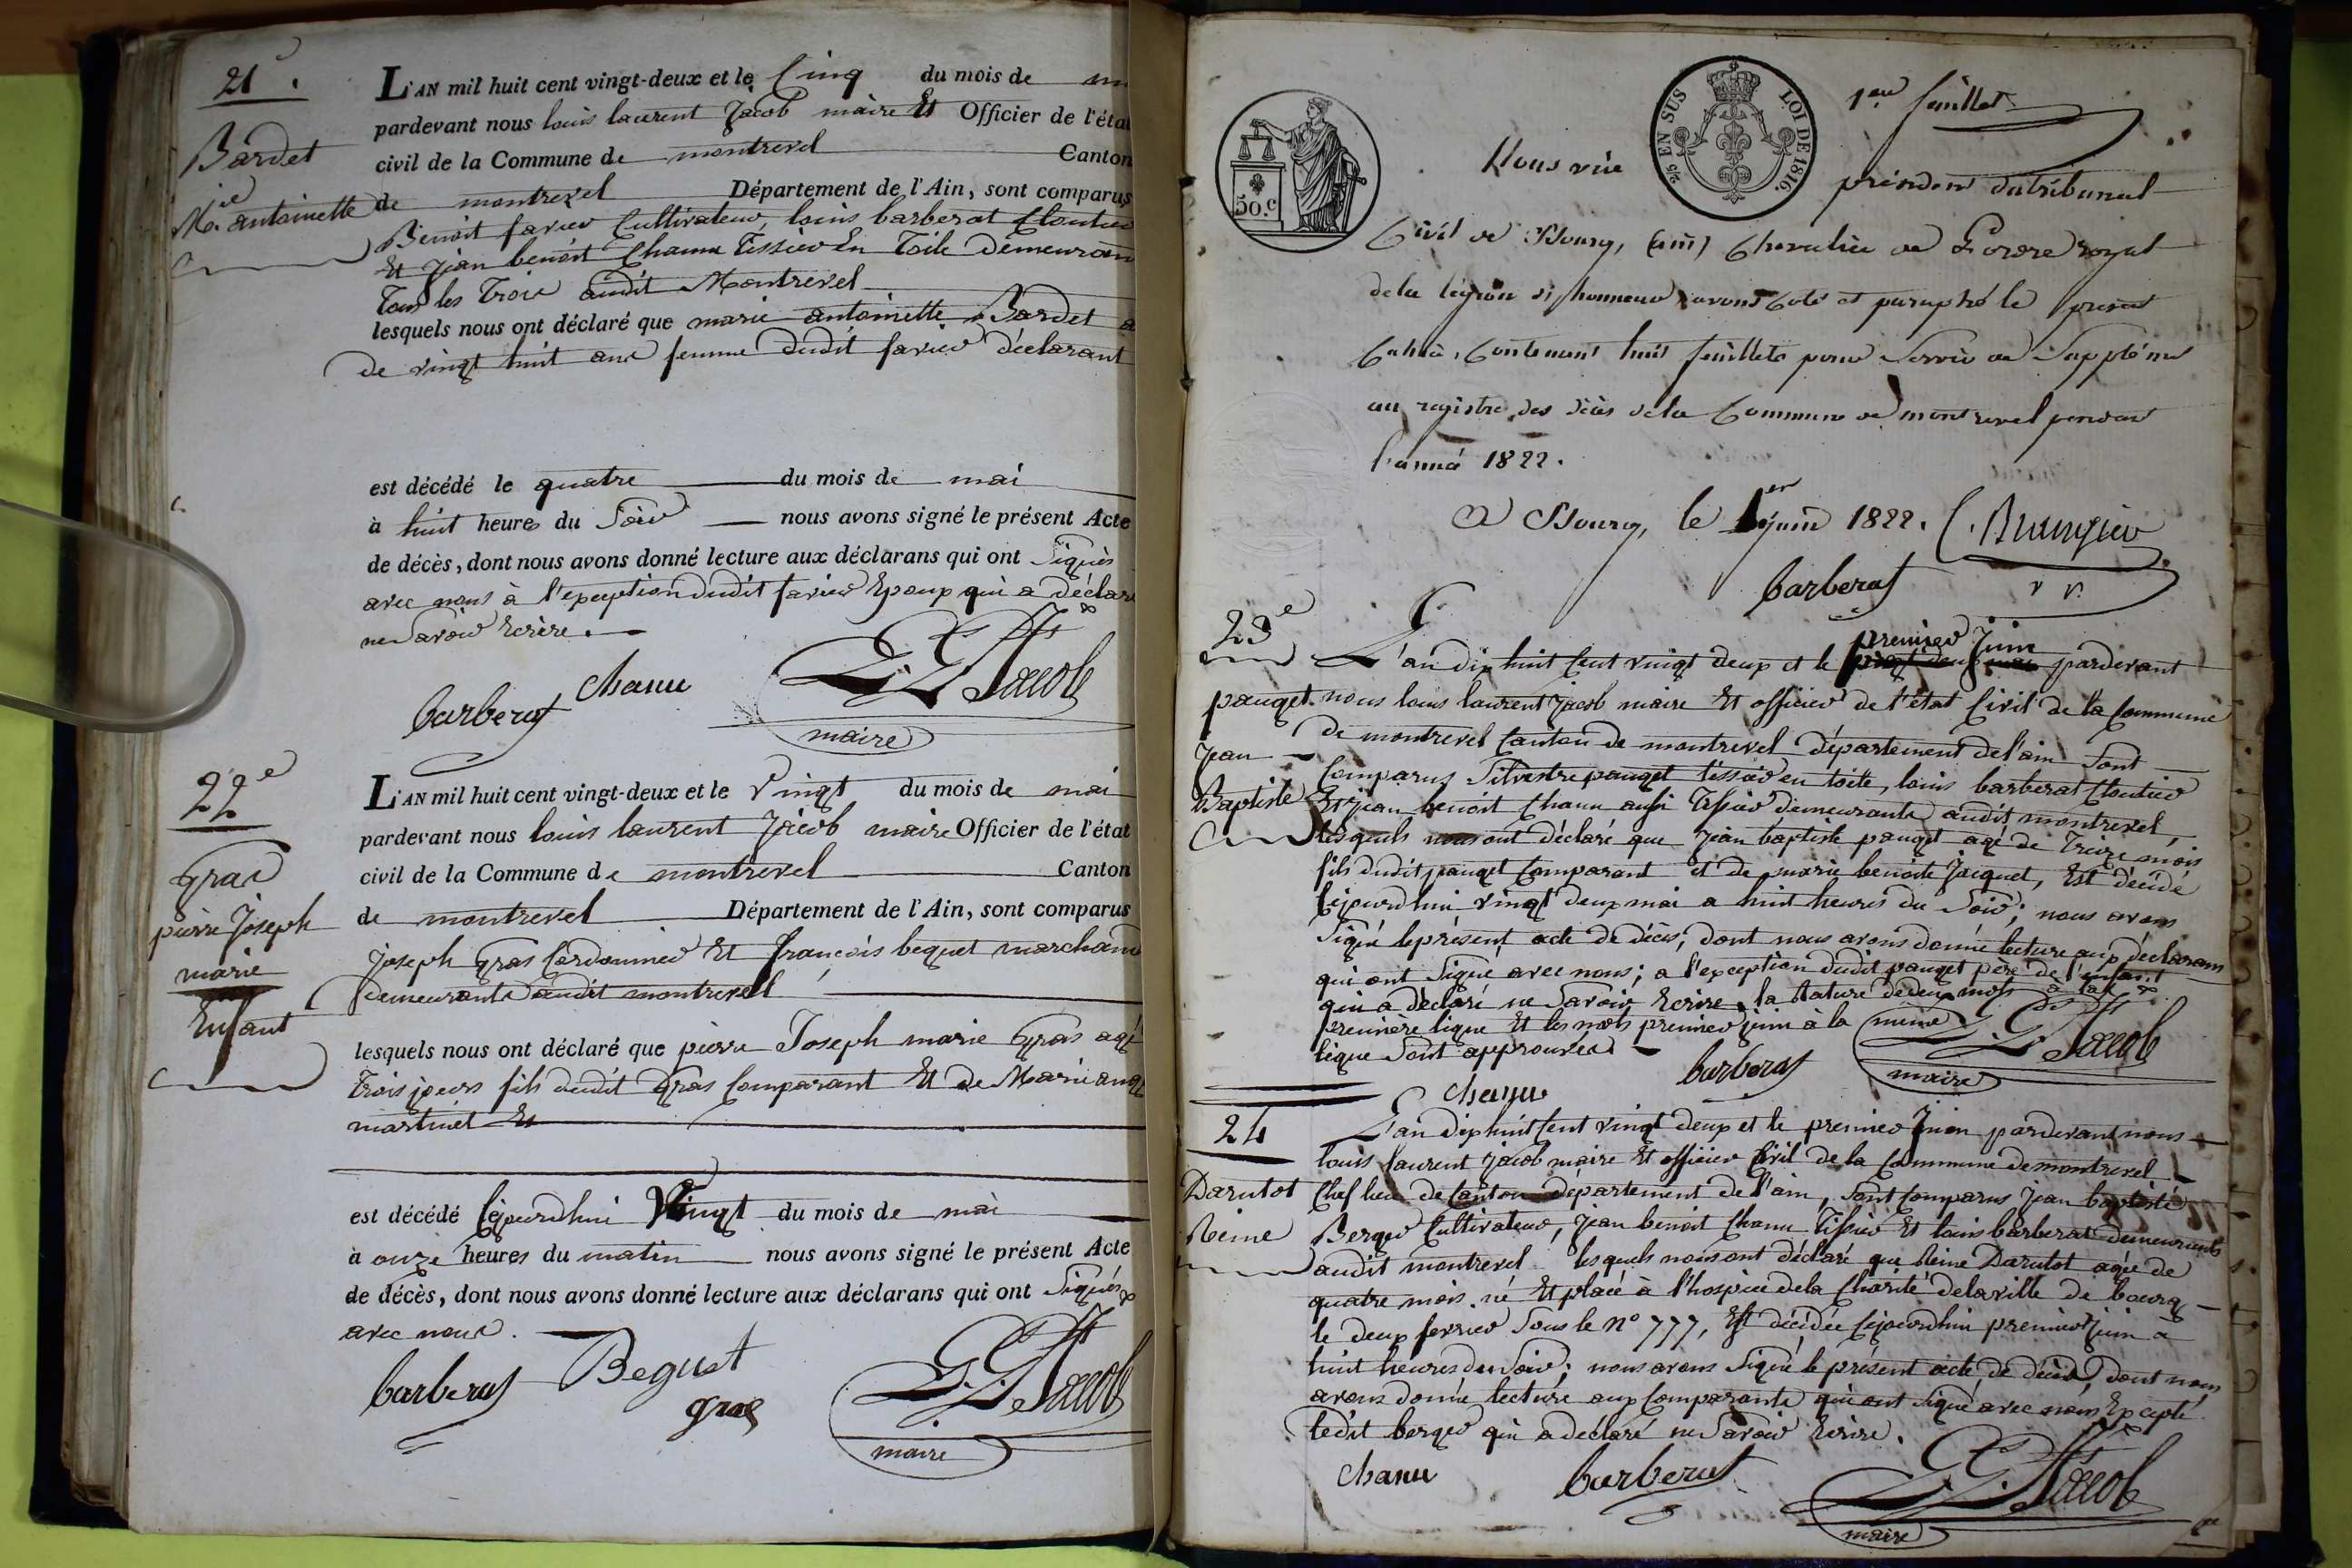 21e.
Bardet
Mie. antoinette
L'AN mil huit cent vingt-deux et le Cinq du mois de
pardevant nous louis laurent Jacob maire Et Officier de l'état
civil de la Commune de montrevel Canton
de montrevel Département de l'Ain, sont comparus
Benoit favier Cultivateur, louis barberat Cloutier
Et jean benoit Chanu Tissier En Toile demeuran
Tous les Trois audit Montrevel
lesquels nous ont déclaré que marie antoinette Bardet a
de vingt huit ans femme dudit favier déclarant
est décédé le quatre du mois de mai
à huit heures du Soir nous avons signé le présent Acte
de décès, dont nous avons donné lecture aux déclarans qui ont Signés
avec nous à l'exception dudit favier Epoux qui a déclaré
ne Savoir Ecrire.
barberat chanu L. L. Jacob
maire
22e
Gras
pierre Joseph
marie
Enfant
L'AN mil huit cent vingt-deux et le Vingt du mois de mai
pardevant nous louis laurent Jacob maire Officier de l'état
civil de la Commune de montrevel Canton
de montrevel Département de l'Ain, sont comparus
Joseph Gras Cordonnier Et françois bequet marchand
demeurants audit montrevel
lesquels nous ont déclaré que pierre Joseph marie Gras agé
Trois jours fils dudit Gras Comparant Et de Marie
martinet Et
est décédé Cejourdhui Vingt du mois de mai
à onze heures du matin nous avons signé le présent Acte
de décès, dont nous avons donné lecture aux déclarans qui ont Signés
avec nous.
barberat Begust gras L. L. Jacob
maire
50.c
25 EN SUS LOI DE 1816.
1er feuillet
Nous président du tribunal
Civil de Bourg, (ain) Chevalier de L'ordre royal
de la légion d'honneur avons Coté et paraphé le présent
Cahier, Contenant huit feuillets pour Servir de Supplément
au registre des décès de la Commune de montrevel pendant
l'année 1822.
A Bourg, le 1er juin 1822.
barberat
23e
pauget
Jean
Baptiste
premier Juin
L'an dix huit Cent vingt deux et le pardevant
nous louis laurent Jacob maire Et officier de l'état Civil de la Commune
de montrevel Canton de montrevel département de l'ain Sont
Comparus Silvestre pauget tissier en toile, louis barberat Cloutier
Et jean benoit Chanu aussi Tissier demeurants audit montrevel,
lesquels nous ont déclaré que Jean baptiste pauget agé de Treize mois
fils dudit pauget Comparant et de marie benoite Jacquet, Est décédé
Cejourdhui vingt deux mai a huit heures du Soir; nous avons
Signé le présent acte de décès, dont nous avons donné lecture aux déclarans
qui ont Signé avec nous; a l'exception dudit pauget père de l'enfant
qui a déclaré ne Savoir Ecrire, la Rature de deux mots à la
premiere ligne Et les mots premier juin à la même
ligne Sont approuvés
chanu barberat L. L. Jacob
maire
24
Darutot
Reine
L'an dix huit Cent vingt deux et le premier Juin pardevant nous
louis laurent Jacob maire Et officier Civil de la Commune de montrevel
Chef lieu de Canton département de l'ain, Sont Comparus Jean baptiste
Berger Cultivateur, Jean benoit Chanu Tissier Et louis barberat demeurants
audit montrevel lesquels nous ont déclaré que Reine Darutot agée de
quatre mois. né Et placé à l'hospice de la Charité de la ville de bourg
le deux fevrier Sous le no 777, Est décédée Cejourdhui premier juin a
huit heures du Soir; nous avons Signé le présent acte de décès, dont nous
avons donné lecture aux Comparants qui ont Signé avec nous Excepté
ledit berger qui a déclaré ne Savoir Ecrire.
chanu barberat L. L. Jacob
maire